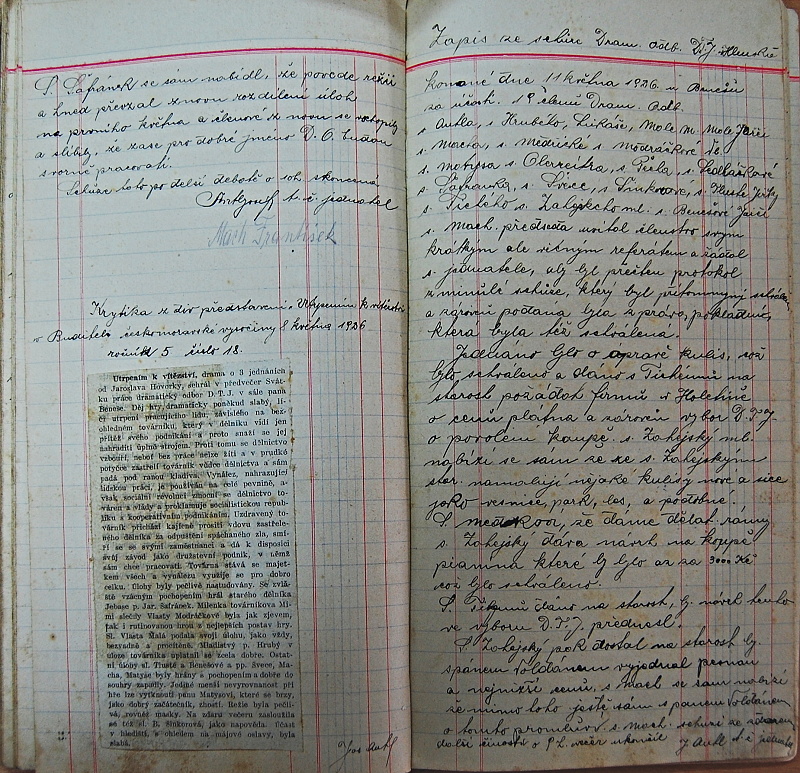 S. Šafránek se sám nabídl, že povede režii
a hned převzal znovu rozdělení úloh
na prvního května a členové zas znovu se
a slíbily, že zase pro dobré jméno D. O. budou
svorně pracovati.
Schůze tato po delší debatě o soh. skončená
t. č. jednatel
Mach František
Krytika z div představení, Utrpením k vítězství
v Buditeli českomoravské vysočiny 8 května 1926
ročník 5 číslo 18.
Utrpením k vítězství, drama o 3 jednáních
od Jaroslava Hovorky, sehrál v předvečer Svát-
ku práce dramatický odbor D. T. J. v sále pana
Beneše. Děj hry, dramaticky poněkud slabý, lí-
čí utrpení pracujícího lidu, závislého na bez-
ohledném továrníku, který v dělníku vidí jen
přítěž svého podnikání a proto snaží se jej
nahraditi úplně strojem. Proti tomu se dělnictvo
vzbouří, neboť bez práce nelze žíti a v prudké
potyčce zastřelí továrník vůdce dělnictva a sám
padá pod ranou kladiva. Vynález, nahrazující
lidskou práci, je používán na celé pevnině, a-
však sociální revolucí zmocní se dělnictvo to-
váren a vlády a proklamuje socialistickou republi-
ku s kooperativním podnikáním. Uzdravený to-
várník přichází kajícně prositi vdovu zastřele-
ného dělníka za odpuštění spáchaného zla, smí-
ří se se svými zaměstnanci a dá k disposici
svůj závod jako družstevní podnik, v němž
sám chce pracovati. Továrna stává se majet-
kem všech a vynálezu využije se pro dobro
celku. Úlohy byly pečlivě nastudovány. Se zvlá-
ště vzácným pochopením hrál starého dělníka
Jebase p. Jar. Šafránek. Milenka továrníkova Mi-
mi slečny Vlasty Modráčkové byla jak zjevem,
tak i rutinovanou hrou z nejlepších postav hry.
Sl. Vlasta Malá podala svoji úlohu, jako vždy,
bezvadně a procítěně. Mladistvý p. Hrubý v
úloze továrníka uplatnil se zcela dobře. Ostat-
ní úlohy sl. Tlusté a Benešové a pp. Švece, Ma-
cha, Matyáše byly hrány s pochopením a dobře do
souhry zapadly. Jedině menší nevyrovnanost při
hře lze vytknouti panu Matysovi, které se brzy,
jako dobrý začátečník, zhostí. Režie byla pečli-
vá, rovněž masky. Na zdaru večeru zasloužila
se též sl. B. Šinkmová, jako nápověda. Účast
v hledišti, s ohledem na májové oslavy, byla
slabá.
Jos Antl
Zapis ze schůze Dram. odb. D.T.J.
konané dne 11 května 1926. u Benešů
za účasti 19 členů Dram. Odb.
s Antla, s Hrubého, Lukáše, Mole M. Mole Jos
s. Macha, s. s Modráčkové
s. Matysa s. s. Píchla, s. Sedláčkové
s. Šafránka, s. Švece, s. s. Tlusté
s. Tichého s. ml. s. Benešové
s. Mach. předseda uvítal členstvo svym
krátkým ale věcným referátem a žádal
s. jednatele, aby byl přečten protokol
z minulé schůze, který byl přítomnými schválen
a zároveň podána byla zpráva, pokladní,
která byla též schválena.
Jednáno bylo o opravě kulis, což
bylo schváleno a dáno s Tichému na
starost požádati firmu v
o cenu plátna a zároveň vybor D.T.J.
o povolení koupě. s. Zahejský ml.
nabízí se sám že se s. Zahejským
star. namalují nějaké kulisy nové a sice
jako vesnice, park, les, a podobné.
že dáme dělat rámy
s. Zahejský dává návrh na koupě
pianina které by bylo as za 3000 Kč
což bylo schváleno.
S. Tichému dáno na starost, by návrh tento
ve vyboru D.T.J. přednesl.
S. Zahejský pak dostal na starost by
s pánem Voldánem vyjednal
a nejnižší cenu. s. Mach se sám nabízí
že mimo toho ještě sám s panem Voldánem
o tomto promluví. s. Mach. schůzi se zdarem
další činnosti o ukončil J. Antl t. č. jednatel